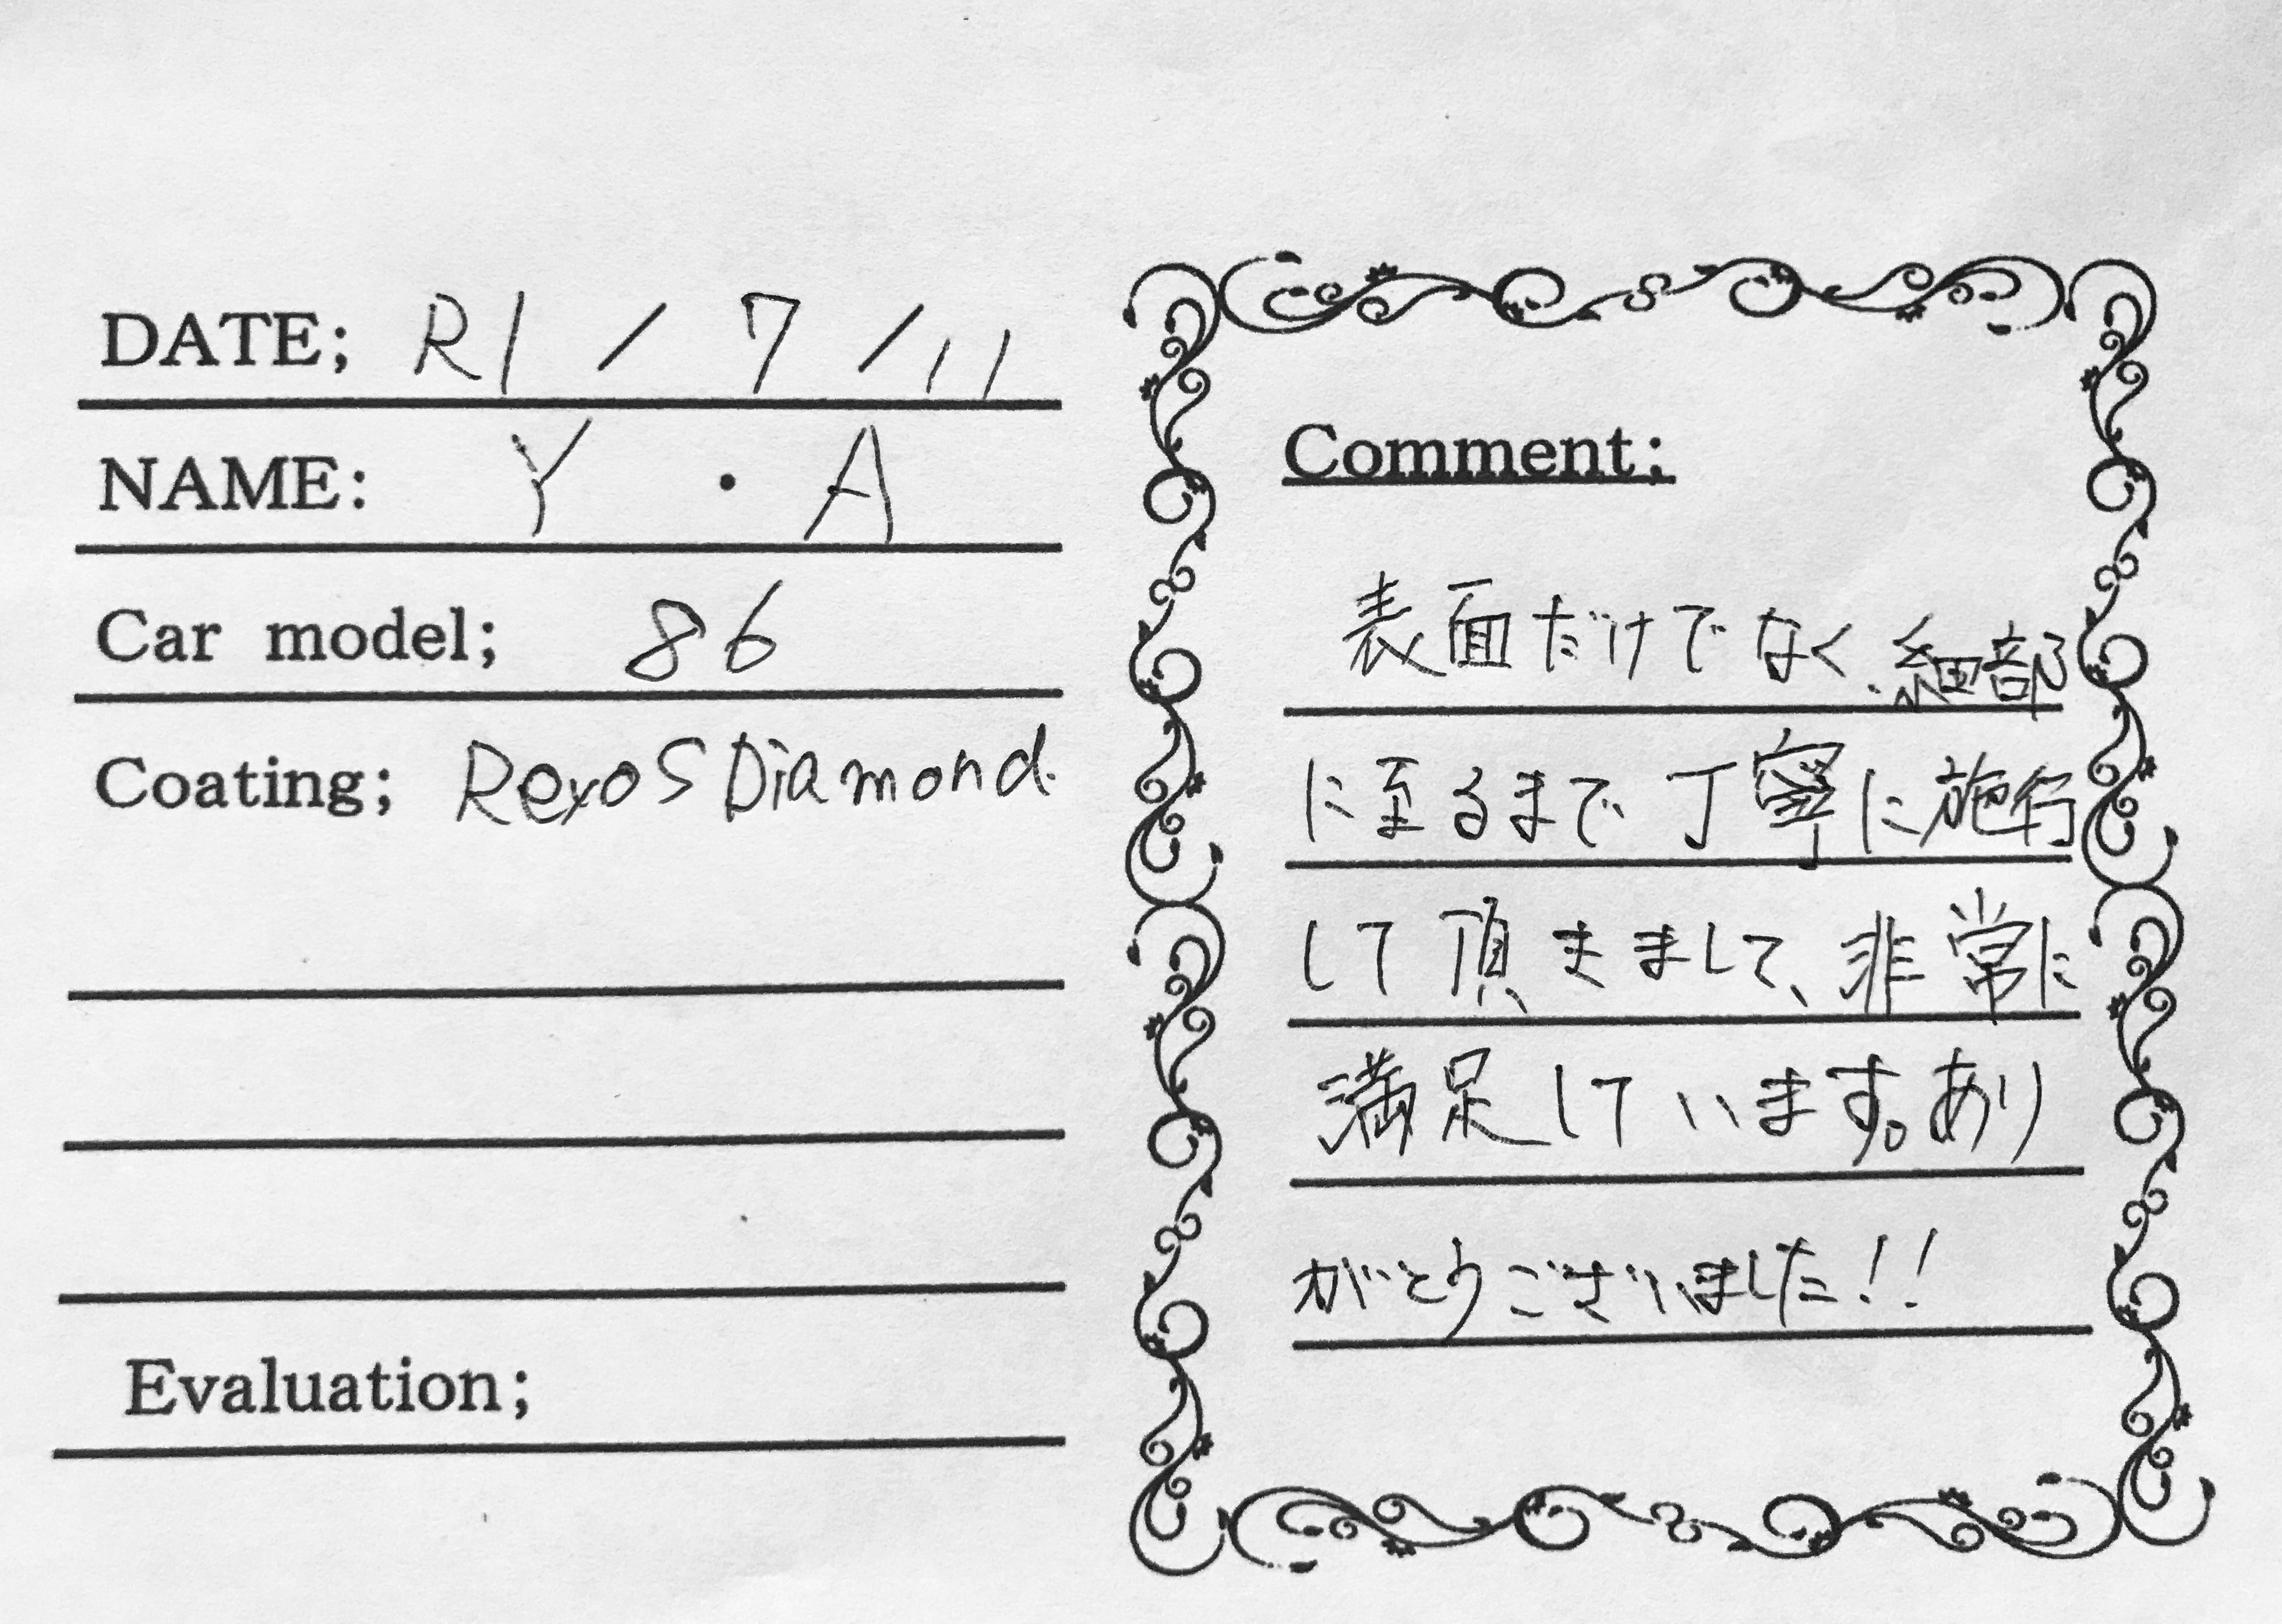 DATE; R1 / 7 / 11
NAME: Y ・ A
Car model; 86
Coating; RexoS Diamond
Evaluation;
Comment;
表面だけでなく、細部
に至るまで丁寧に施行
して頂きまして、非常に
満足しています。あり
がとうございました!!